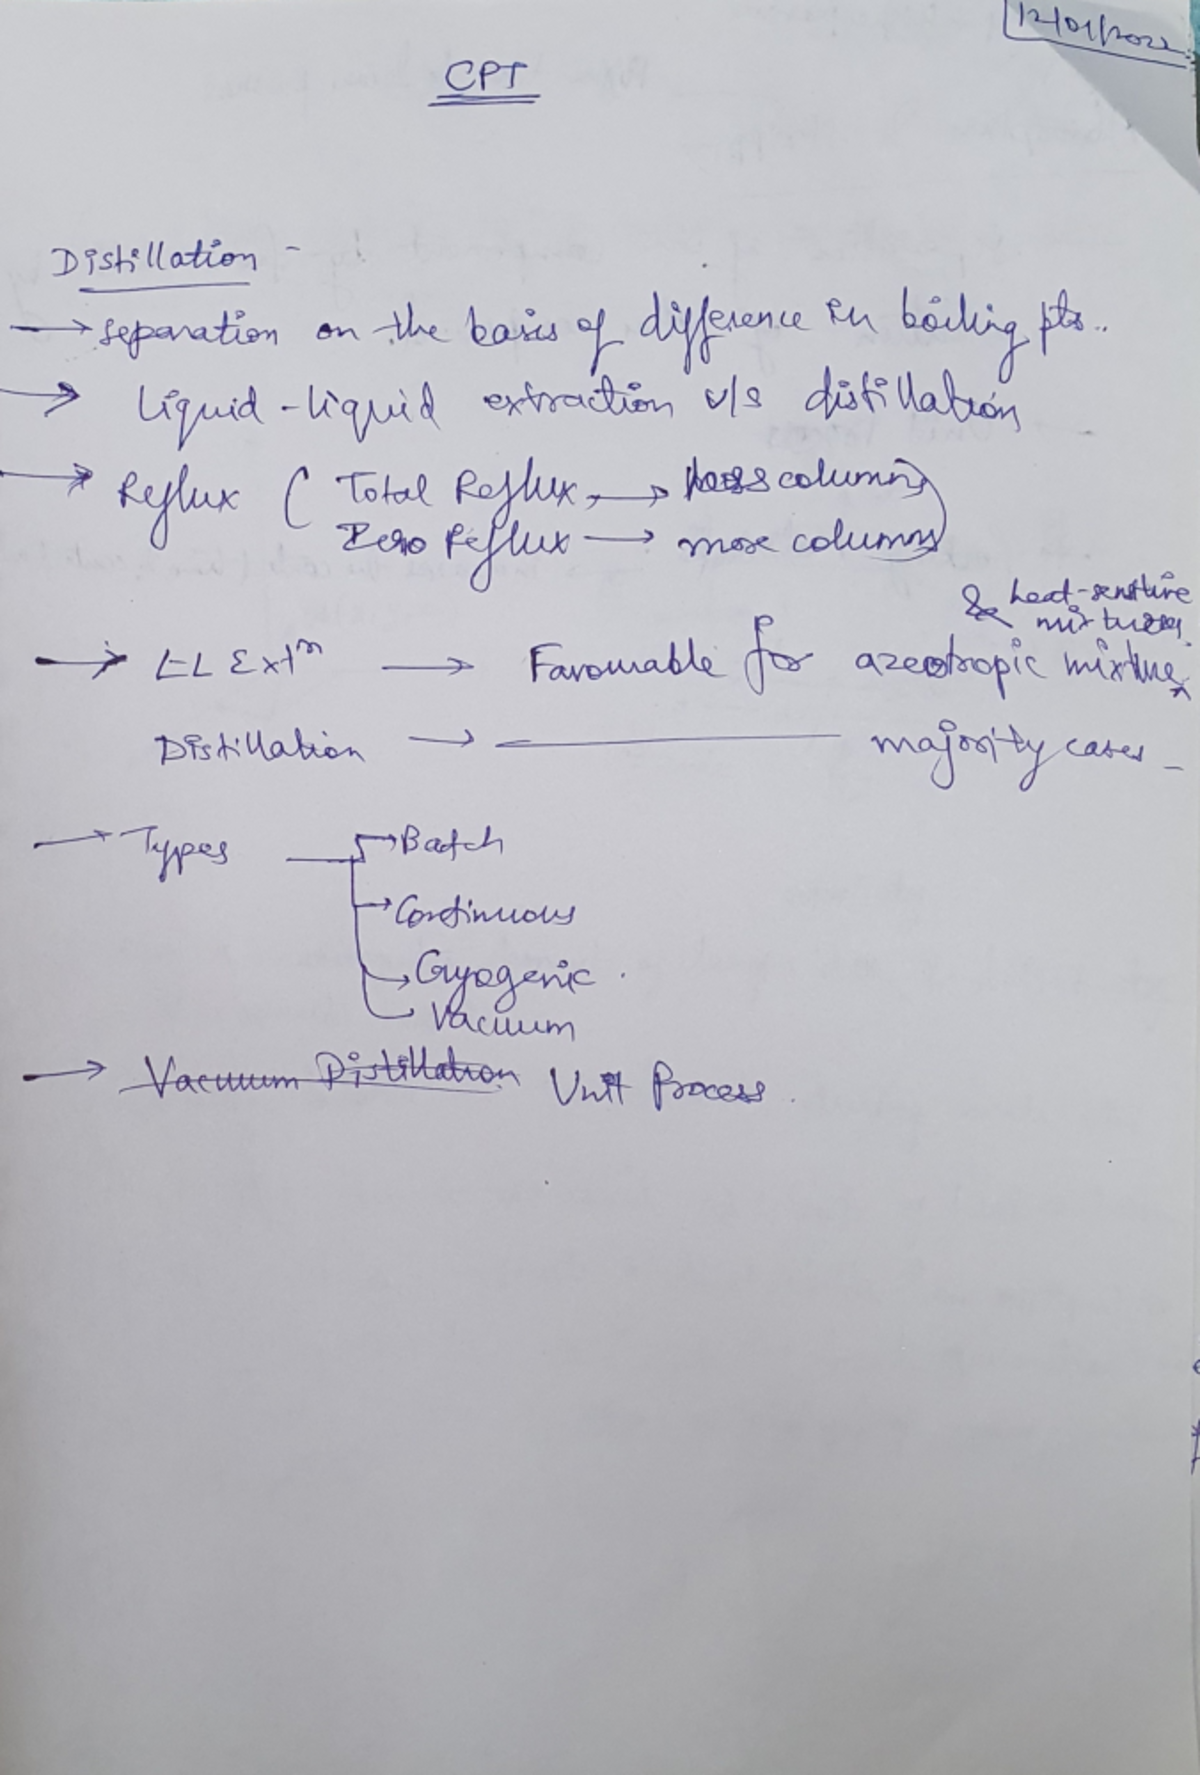 12/01/2022
CPT
Distillation -
→ separation on the basis of difference in boiling pts..
→ Liquid-liquid extraction v/s distillation
→ Reflux ( Total Reflux, → less columns
Zero Reflux → more columns)
& heat-sensitive
mixtures
→ LL Extⁿ → Favourable for azeotropic mixture
Distillation → ——— majority cases -
→ Types → Batch
→ Continuous
→ Cryogenic .
Vacuum
→ Vacuum Distillation Unit Process .